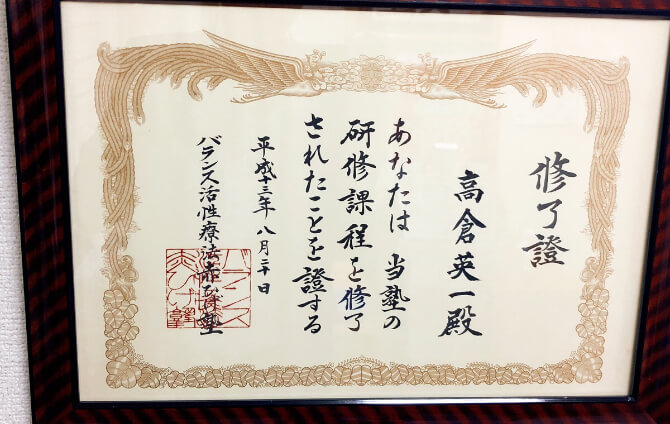 修了證
高倉英一殿
あなたは 当塾の
研修課程を修了
されたことを證する
平成十三年八月二十日
バランス活性療法赤ひげ塾